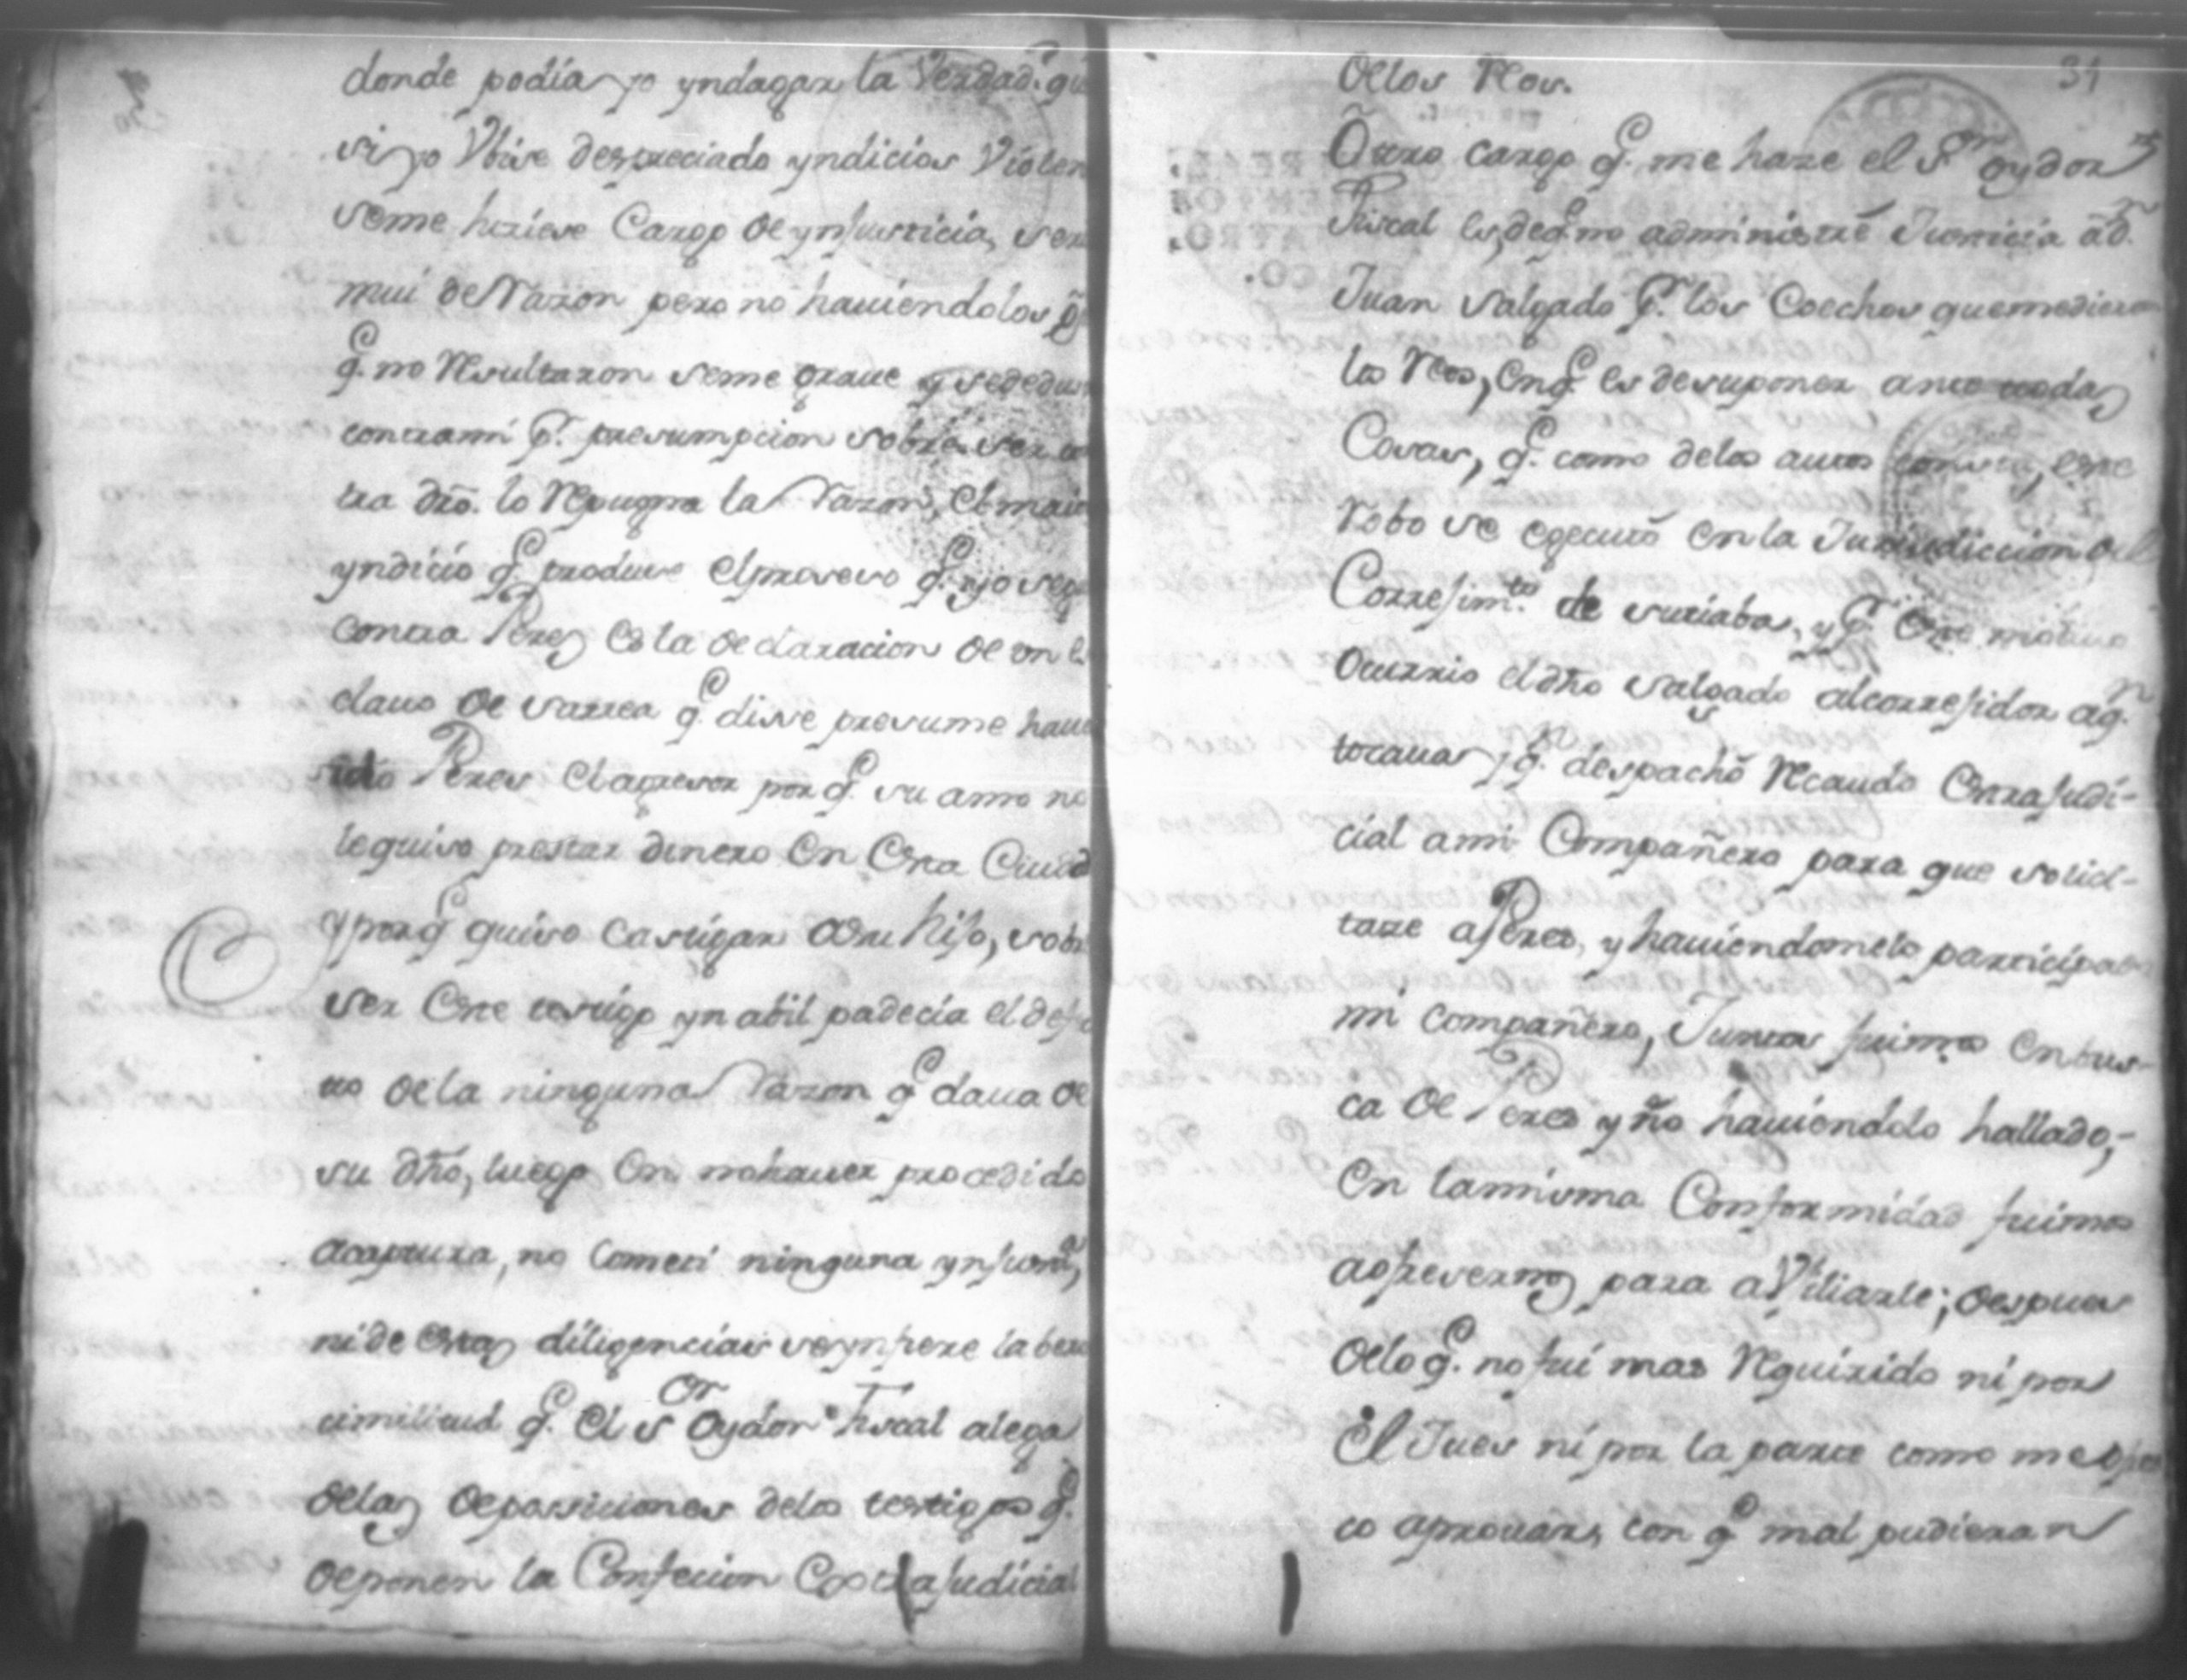 donde podia yo yndagar la Verdad. q̃
si yo Vbise despreciado yndicios Violen
seme hisiese Cargo de ynjusticia, sera
mui de Razon pero no hauiendolos
q.̃ no Resultaron seme graue y se dedus
contrami p.r presumpcion sobre ser con
tra dro. lo Repugna la Razon, El maior
yndicio q.̃ produse el proseso q.̃ yo segui
contra Peres Es la declaracion de vn es
clauo de Varrea q.̃ disse presume hauer
sido Peres El agresor por q.̃ su amo no
le quiso prestar dinero En Esta Ciudad
y por q.̃ quiso castigar a su hijo, sobre
ser Este testigo ynabil padecia el defec
to de la ninguna Razon q.̃ daua de
su dho, luego En no hauer procedido
a captura, no cometi ninguna ynjust.a,
ni de Estas diligencias se ynfiere la bero
cimilitud q.̃ El s.or Oydor fiscal alega
de las deposiciones de los testigos q.̃
deponen la Confecion Extrajudicial
de los Reos.
Otro cargo q.̃ me haze el S.or oydor
Fiscal Es, de q.̃ no administrè Justicia à D.n
Juan Salgado p.r los Coechos que me dieron
los Reos, En q.̃ es de suponer ante todas
Cosas, q.̃ como de los autos consta, Este
Robo se egecutò En la Jurisdiccion del
Correjim.to de suriaba, y p.r Este motiuo
Ocurrio el dho Salgado al correjidor a q.n
tocaua, y q.n despachò Recaudo Extrajudi-
cial a mi Compañero para que solici-
tase a Peres, y hauiendomelo participado
mi compañero, Juntos fuimos En bus-
ca de Peres y no hauiendolo hallado,
En la misma Conformidad fuimos
a ofresernos para aVxiliarle; despues
de lo q.̃ no fui mas Requirido ni por
El Jues ni por la parte como me ofres
co aprouars, con q.̃ mal pudieran